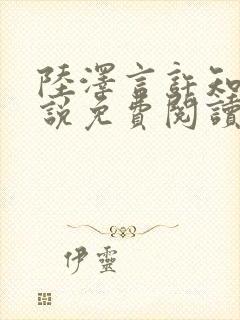 陸澤言許知
說免費閱讀
伊靈